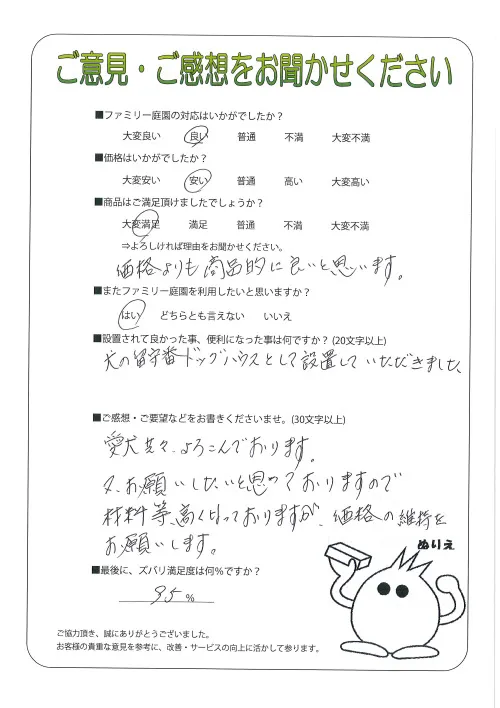 ご意見・ご感想をお聞かせください
■ファミリー庭園の対応はいかがでしたか？
大変良い 良い 普通 不満 大変不満
■価格はいかがでしたか？
大変安い 安い 普通 高い 大変高い
■商品はご満足頂けましたでしょうか？
大変満足 満足 普通 不満 大変不満
⇒よろしければ理由をお聞かせください。
価格よりも商品的に良いと思います。
■またファミリー庭園を利用したいと思いますか？
はい どちらとも言えない いいえ
■設置されて良かった事、便利になった事は何ですか？(20文字以上)
犬の留守番ドッグハウスとして設置していただきました
■ご感想・ご要望などをお書きくださいませ。(30文字以上)
愛犬共々、よろこんでおります。
又、お願いしたいと思っておりますので
材料等、高くなっておりますが、価格の維持を
お願いします。
ぬりえ
■最後に、ズバリ満足度は何％ですか？
95 %
ご協力頂き、誠にありがとうございました。
お客様の貴重な意見を参考に、改善・サービスの向上に活かして参ります。